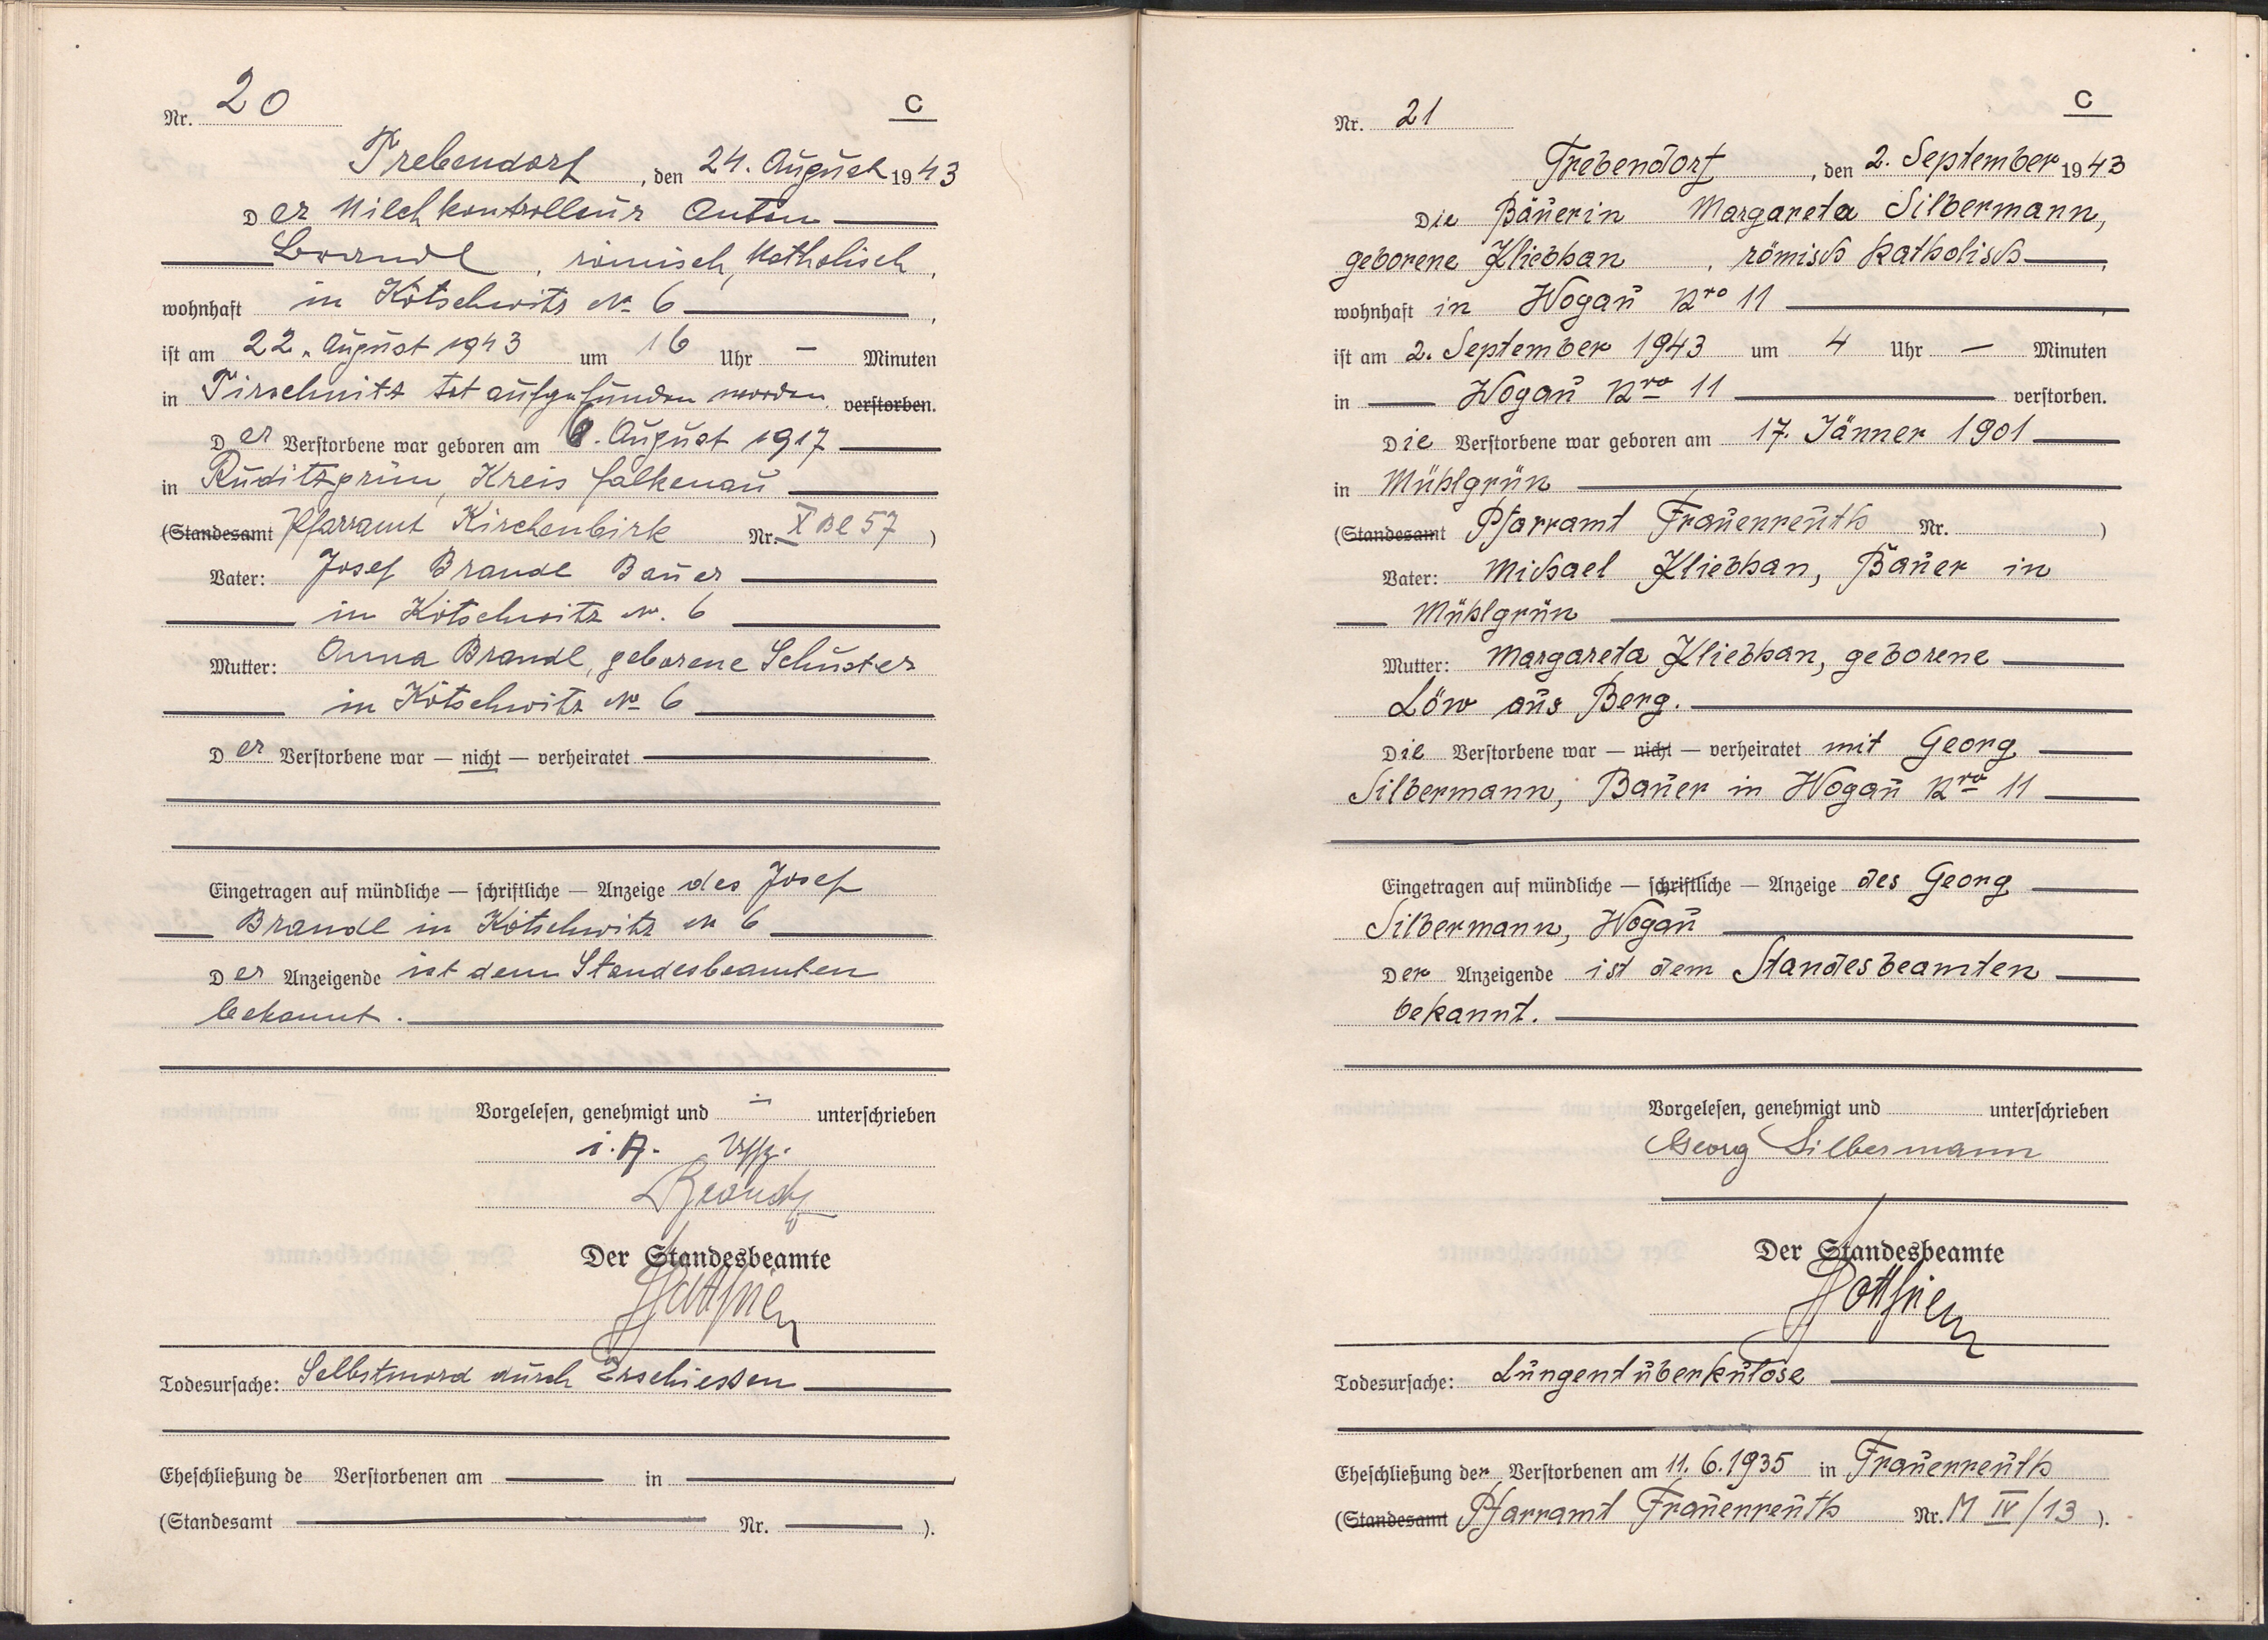 Nr. 20
C
Trebendorf, den 24. August 1943
Der Milchkontrolleur Anton
Brandl, römisch, katholisch,
wohnhaft in Kötschwitz Nr 6,
ist am 22. August 1943 um 16 Uhr — Minuten
in Tirschnitz tot aufgefunden worden verstorben.
Der Verstorbene war geboren am 8. August 1917
in Ruditzgrün, Kreis Falkenau
(Standesamt Pfarramt Kirchenbirk Nr. X Bl 57)
Vater: Josef Brandl Bauer
in Kötschwitz Nr. 6
Mutter: Anna Brandl, geborene Schuster
in Kötschwitz Nr 6
Der Verstorbene war — nicht — verheiratet
Eingetragen auf mündliche — schriftliche — Anzeige des Josef
Brandl in Kötschwitz Nr 6
Der Anzeigende ist dem Standesbeamten
bekannt.
Vorgelesen, genehmigt und — unterschrieben
i. A. Uffz.
Der Standesbeamte
Todesursache: Selbstmord durch Erschiessen
Eheschließung de Verstorbenen am — in —
(Standesamt — Nr. — ).
Nr. 21
C
Trebendorf, den 2. September 1943
Die Bäuerin Margareta Silbermann,
geborene Kliebhan, römisch katholisch,
wohnhaft in Wogau Nro 11,
ist am 2. September 1943 um 4 Uhr — Minuten
in Wogau Nro 11 verstorben.
Die Verstorbene war geboren am 17. Jänner 1901
in Mühlgrün
(Standesamt Pfarramt Frauenreuth Nr. )
Vater: Michael Kliebhan, Bauer in
Mühlgrün
Mutter: Margareta Kliebhan, geborene
Löw aus Berg.
Die Verstorbene war — nicht — verheiratet mit Georg
Silbermann, Bauer in Wogau Nro 11
Eingetragen auf mündliche — schriftliche — Anzeige des Georg
Silbermann, Wogau
Der Anzeigende ist dem Standesbeamten
bekannt.
Vorgelesen, genehmigt und unterschrieben
Georg Silbermann
Der Standesbeamte
Todesursache: Lungentuberkulose
Eheschließung der Verstorbenen am 11. 6. 1935 in Frauenreuth
(Standesamt Pfarramt Frauenreuth Nr. M IV/13 ).